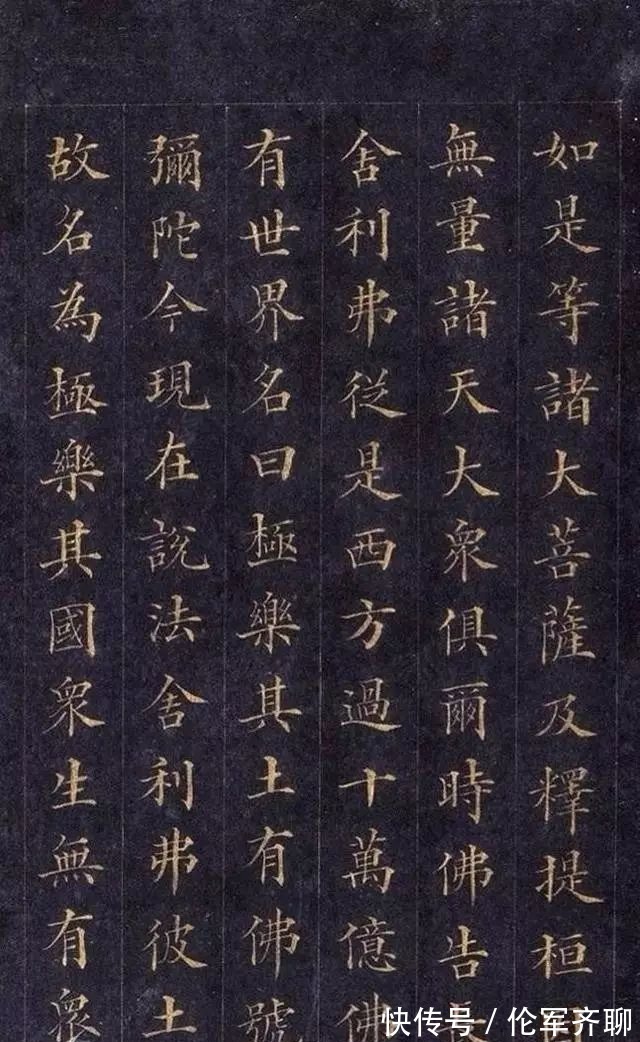 如是等諸大菩薩及釋提桓
無量諸天大衆俱爾時佛告
舍利弗從是西方過十萬億佛
有世界名曰極樂其土有佛號
彌陀今現在說法舍利弗彼土
故名為極樂其國衆生無有衆
快传号/伦军齐聊